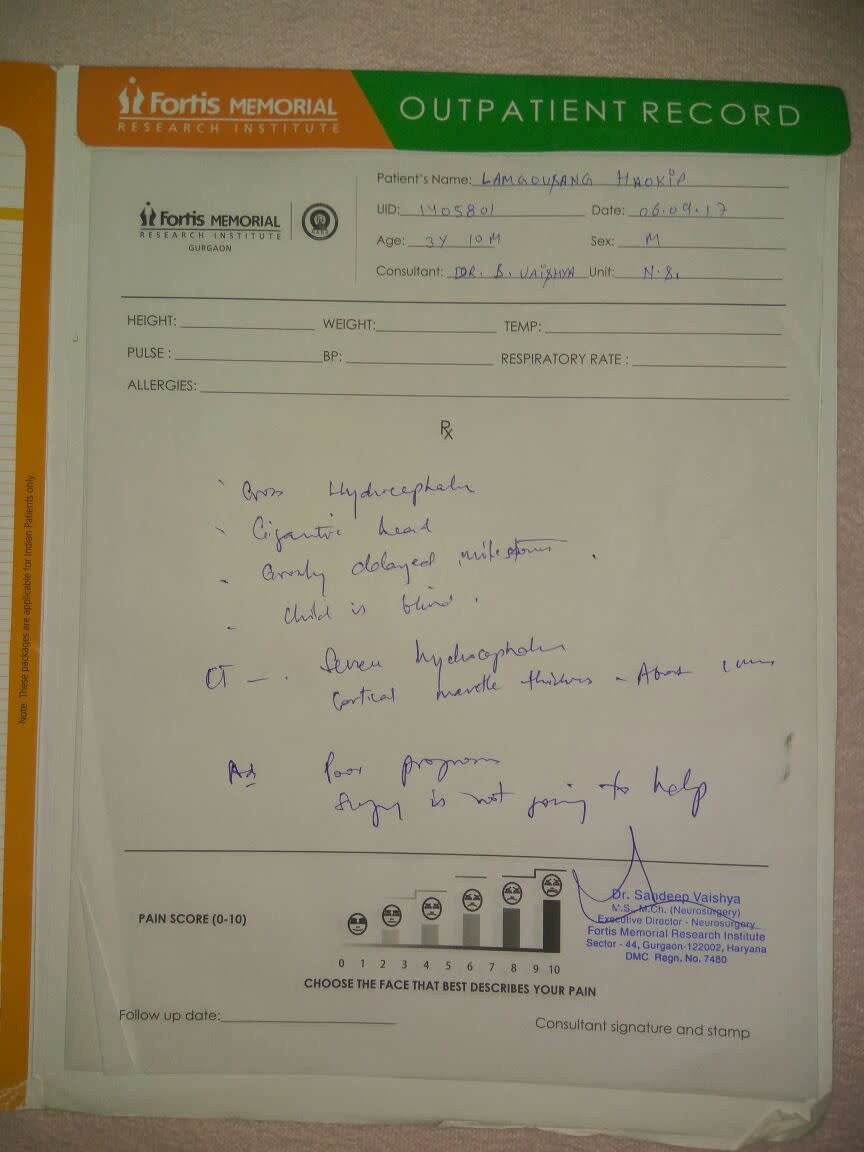 Fortis MEMORIAL
RESEARCH INSTITUTE
OUTPATIENT RECORD
Fortis MEMORIAL
RESEARCH INSTITUTE
GURGAON
Patient's Name: LAMGOUSANG HAOKIP
UID: 1405801 Date: 06.09.17
Age: 3Y 10M Sex: M
Consultant: DR. S. VAISHYA Unit: N.S.
HEIGHT: WEIGHT: TEMP:
PULSE : BP: RESPIRATORY RATE :
ALLERGIES:
Rx
Gross Hydrocephalus
Gigantic head
Grossly delayed milestones .
Child is blind .
CT - . Severe hydrocephalus
Cortical mantle thickness - About
Ad Poor prognosis
Surgery is not going to help
PAIN SCORE (0-10)
0 1 2 3 4 5 6 7 8 9 10
CHOOSE THE FACE THAT BEST DESCRIBES YOUR PAIN
Dr. Sandeep Vaishya
M.S., M.Ch. (Neurosurgery)
Executive Director - Neurosurgery
Fortis Memorial Research Institute
Sector - 44, Gurgaon-122002, Haryana
DMC Regn. No. 7480
Follow up date: Consultant signature and stamp
Note: These packages are applicable for Indian Patients only.